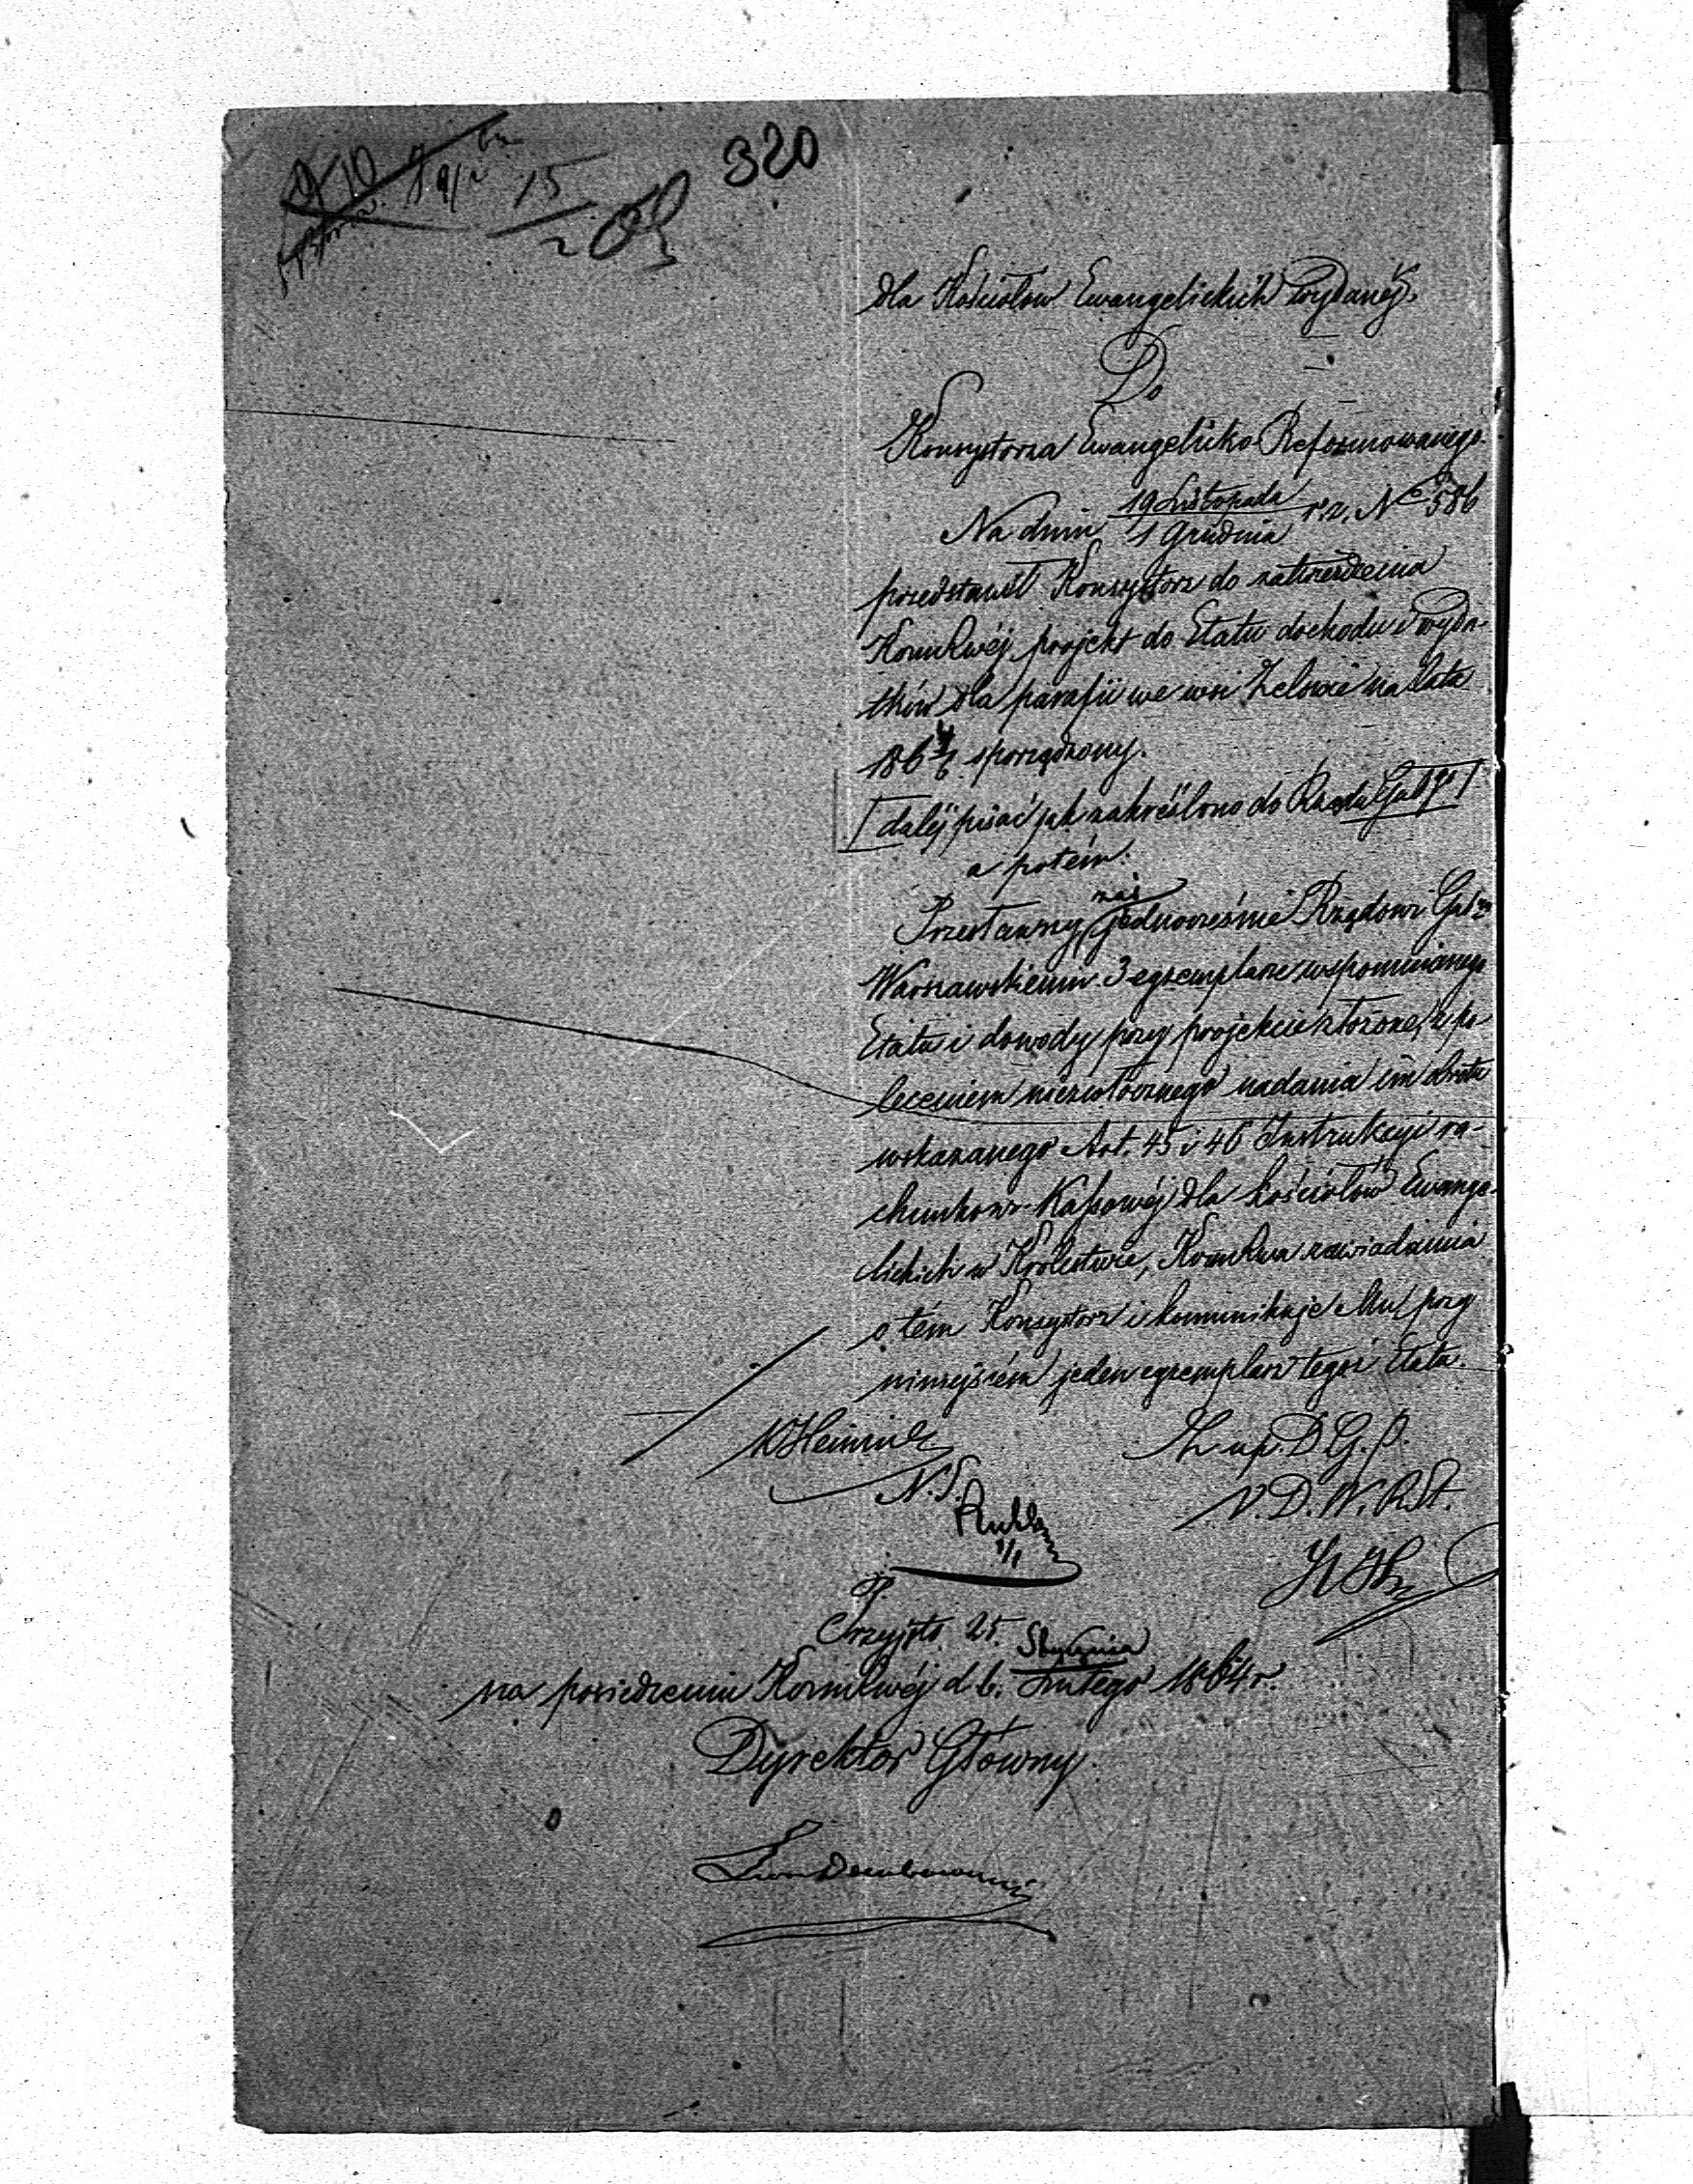 320
15
dla Kościołów Ewangelickich wydanéj.
Do
Konsystorza Ewangelicko-Reformowanego
Na dniu 19 Listopada / 1 Grudnia r. z. No 586
przedstawił Konsystorz do zatwierdzenia
KomRwéj projekt do Etatu dochodu i wyda-
tków dla parafii we wsi Zelowie na lata
186 4/6 sporządzony.
[dalej pisać jak zakreślono do Rządu Gubgo]
a potém.
Przesławszy zaś jednocześnie Rządowi Gub
Warszawskiemu 3 egzemplarze wspomnianego
Etatu i dowody przy projekcie złożone, z po
leceniem niezwłocznego nadania im obrotu
wskazanego Art. 45 i 46 Instrukcyi ra-
chunkowo-Kassowéj dla kościołów Ewange-
lickich w Królestwie, KomRwa zawiadamia
o tém Konsystorz i komunikuje Mu przy
niniejszém jeden egzemplarz tegoż Etatu.
Z up. D. G. P.
N. S.
V. D. W. R. St.
Przyjęto 25. Stycznia
na posiedzeniu KomRwéj d 6. Lutego 1864 r.
Dyrektor Główny